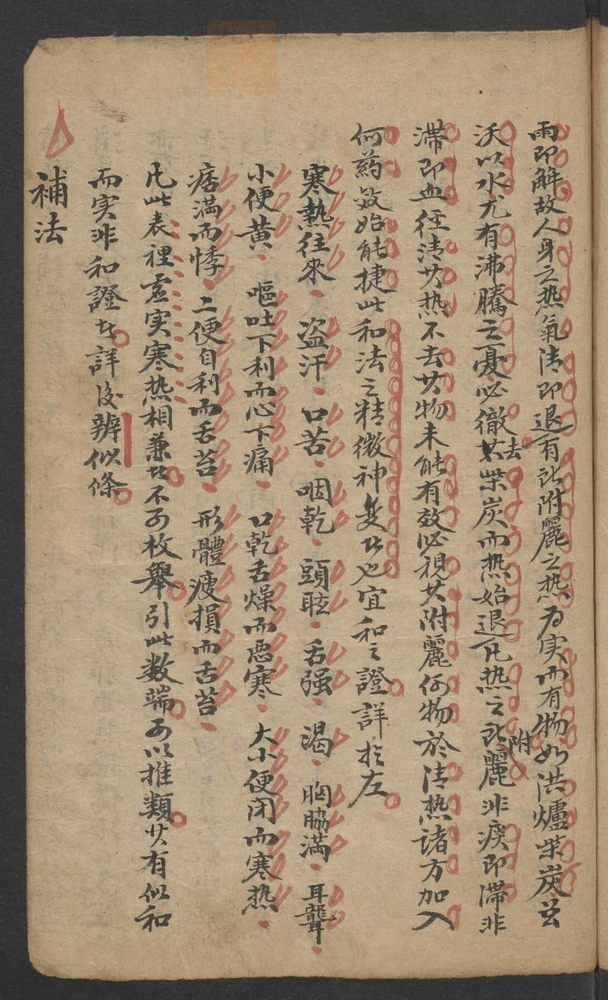 雨即解故人身之热氣清即退有所附麗之热為实而有物如洪爐柴炭若
沃以水尤有沸騰之憂必徹去其柴炭而热始退凡热之所附麗非痰即滯非
滯即血徒清其热不去其物未能有效必視其附麗何物於清热諸方加入
何药效始能捷此和法之精微神变者也宜和之證詳於左
寒熱往來 盗汗 口苦 咽乾 頭眩 舌强 渴 胸脇滿 耳聾
小便黄 嘔吐下利而心下痛 口乾舌燥而恶寒 大小便闭而寒热
痞滿而悸 二便自利而舌苔 形體瘦損而舌苔
凡此表裡虛实寒热相兼者不可枚舉引此数端可以推類其有似和
而实非和證者詳後辨似條
補法